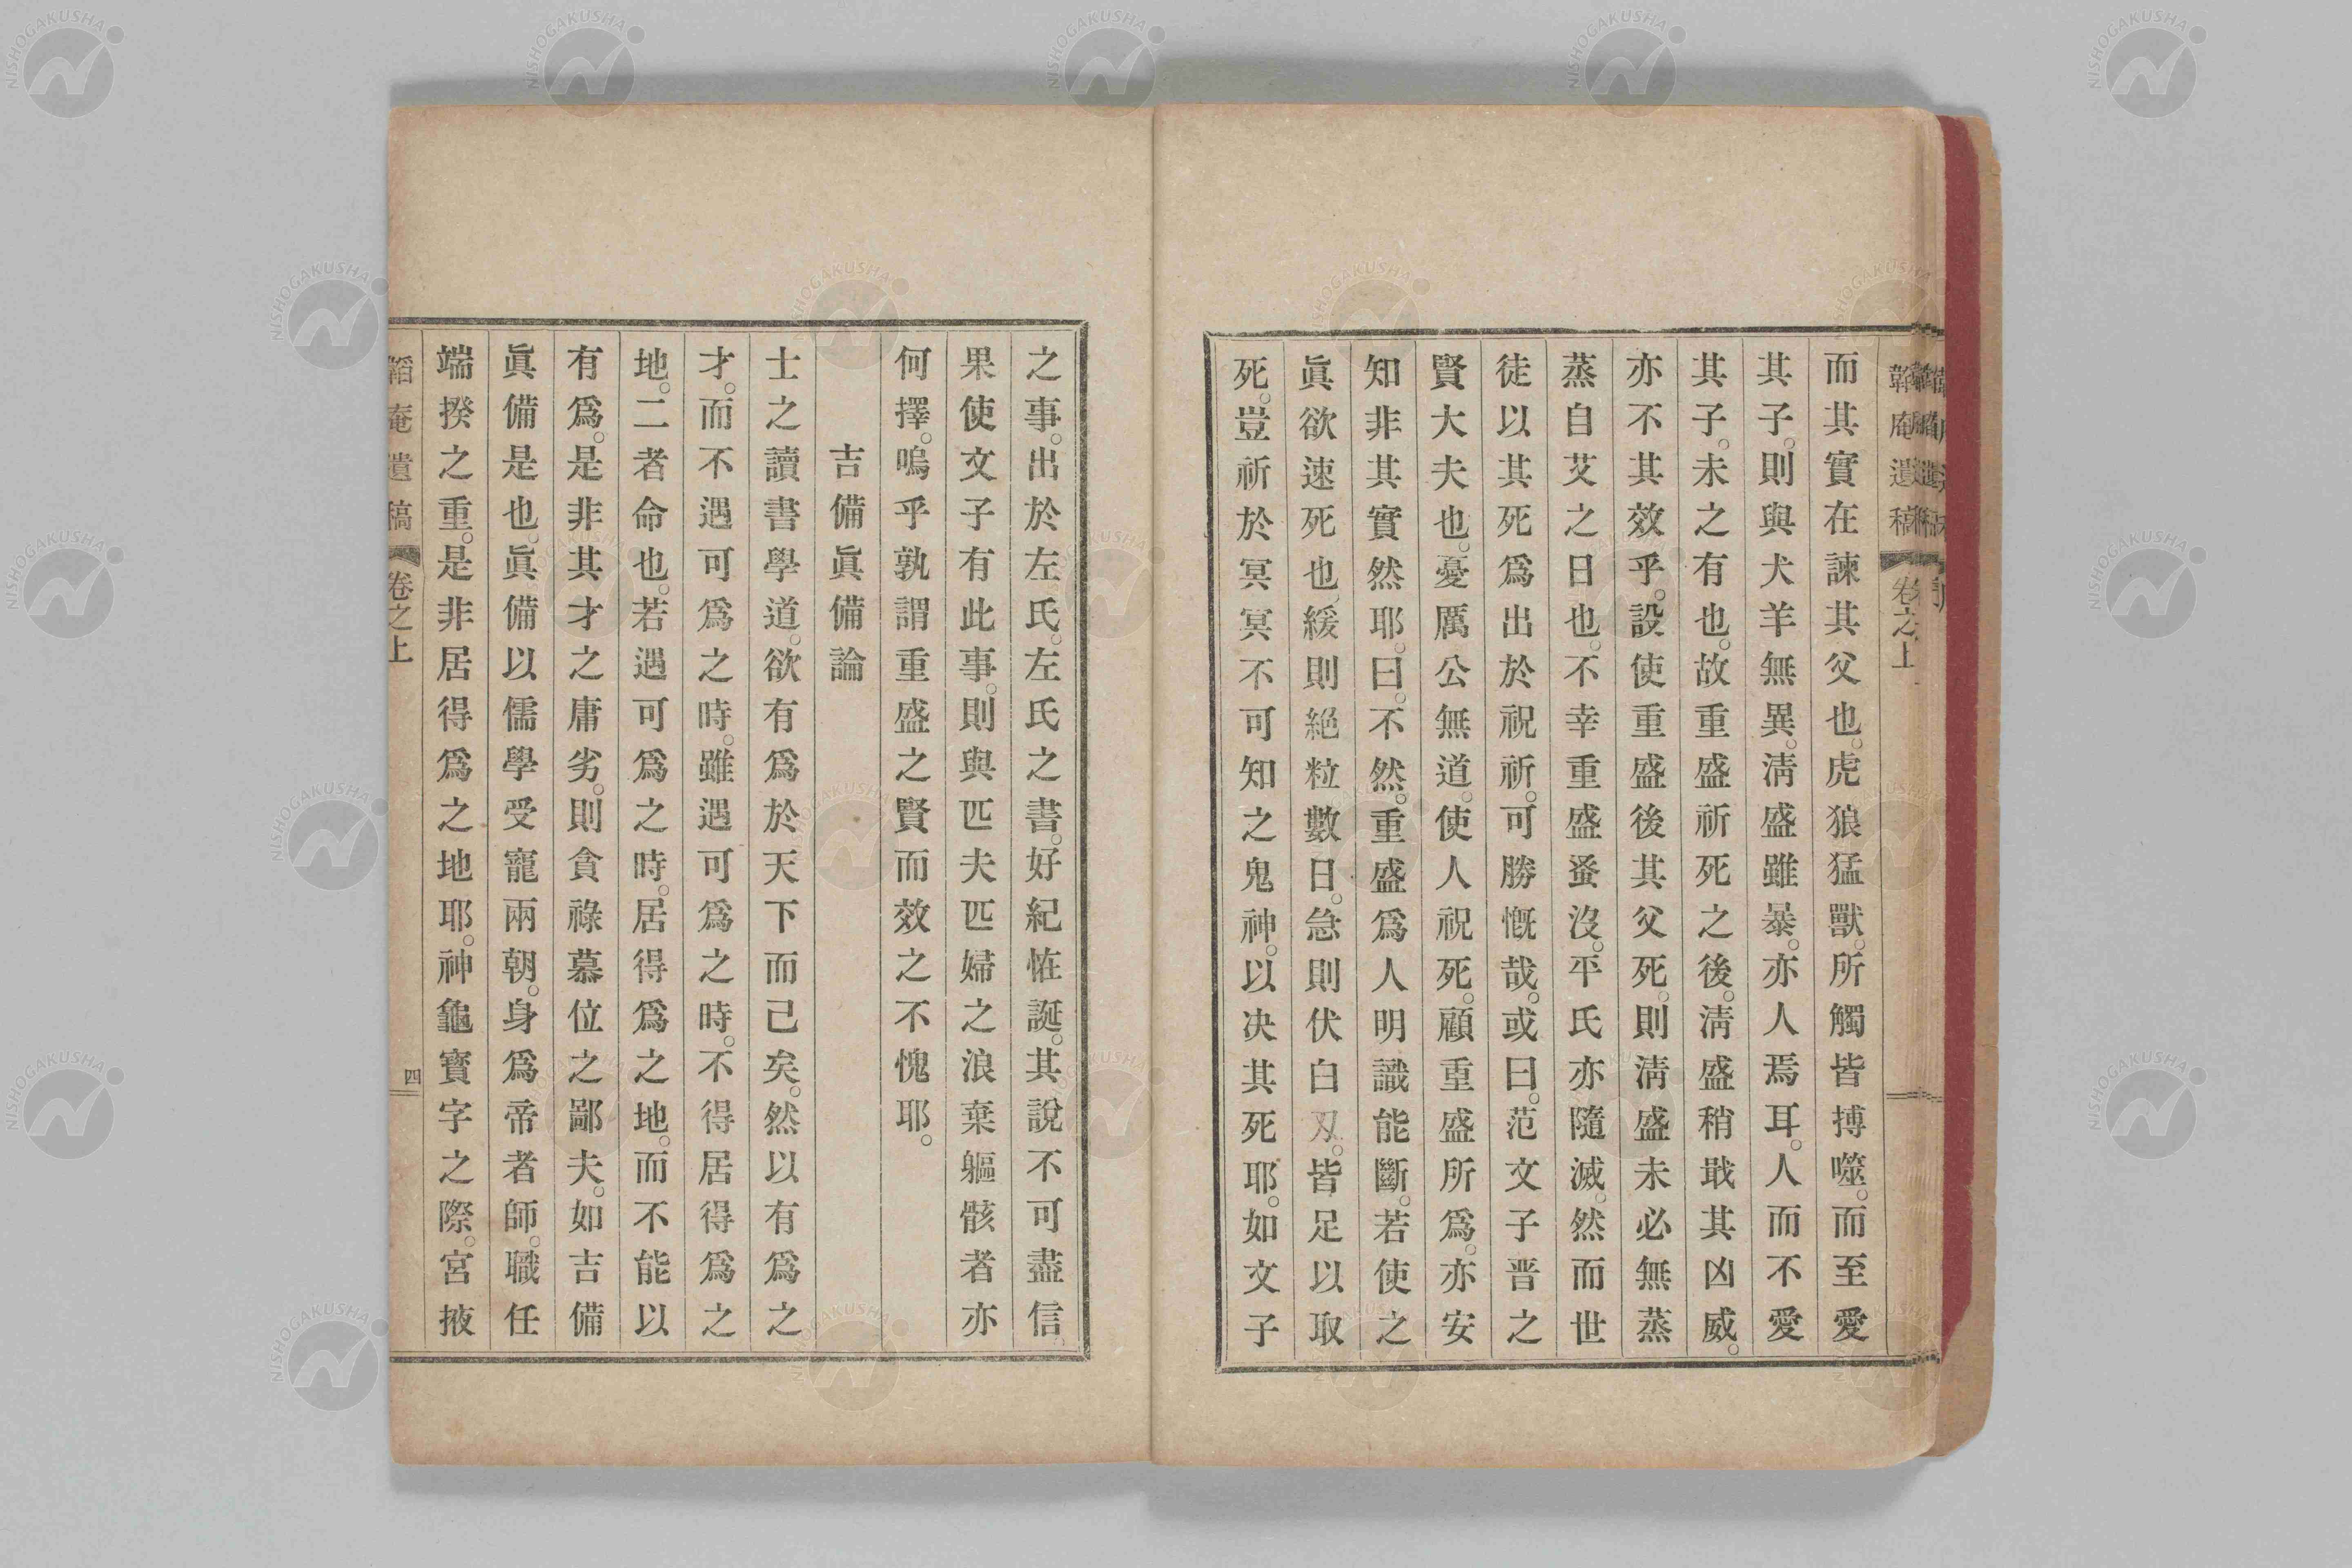 韜庵遺稿 卷之上
而其實在諫其父也。虎狼猛獸。所觸皆搏噬。而至愛
其子。則與犬羊無異。淸盛雖暴。亦人焉耳。人而不愛
其子。未之有也。故重盛祈死之後。淸盛稍戢其凶威。
亦不其效乎。設使重盛後其父死。則淸盛未必無蒸
蒸自艾之日也。不幸重盛蚤沒。平氏亦隨滅。然而世
徒以其死爲出於祝祈。可勝慨哉。或曰。范文子晋之
賢大夫也。憂厲公無道。使人祝死。顧重盛所爲。亦安
知非其實然耶。曰。不然。重盛爲人明識能斷。若使之
眞欲速死也。緩則絕粒數日。急則伏白刄。皆足以取
死。豈祈於冥冥不可知之鬼神。以决其死耶。如文子
之事。出於左氏。左氏之書。好紀恠誕。其說不可盡信
果使文子有此事。則與匹夫匹婦之浪棄軀骸者亦
何擇。嗚乎孰謂重盛之賢而效之不愧耶。
吉備眞備論
士之讀書學道。欲有爲於天下而已矣。然以有爲之
才。而不遇可爲之時。雖遇可爲之時。不得居得爲之
地。二者命也。若遇可爲之時。居得爲之地。而不能以
有爲。是非其才之庸劣。則貪祿慕位之鄙夫。如吉備
眞備是也。眞備以儒學受寵兩朝。身爲帝者師。職任
端揆之重。是非居得爲之地耶。神龜寶字之際。宮掖
韜庵遺稿 卷之上 四
NISHOGAKUSHA